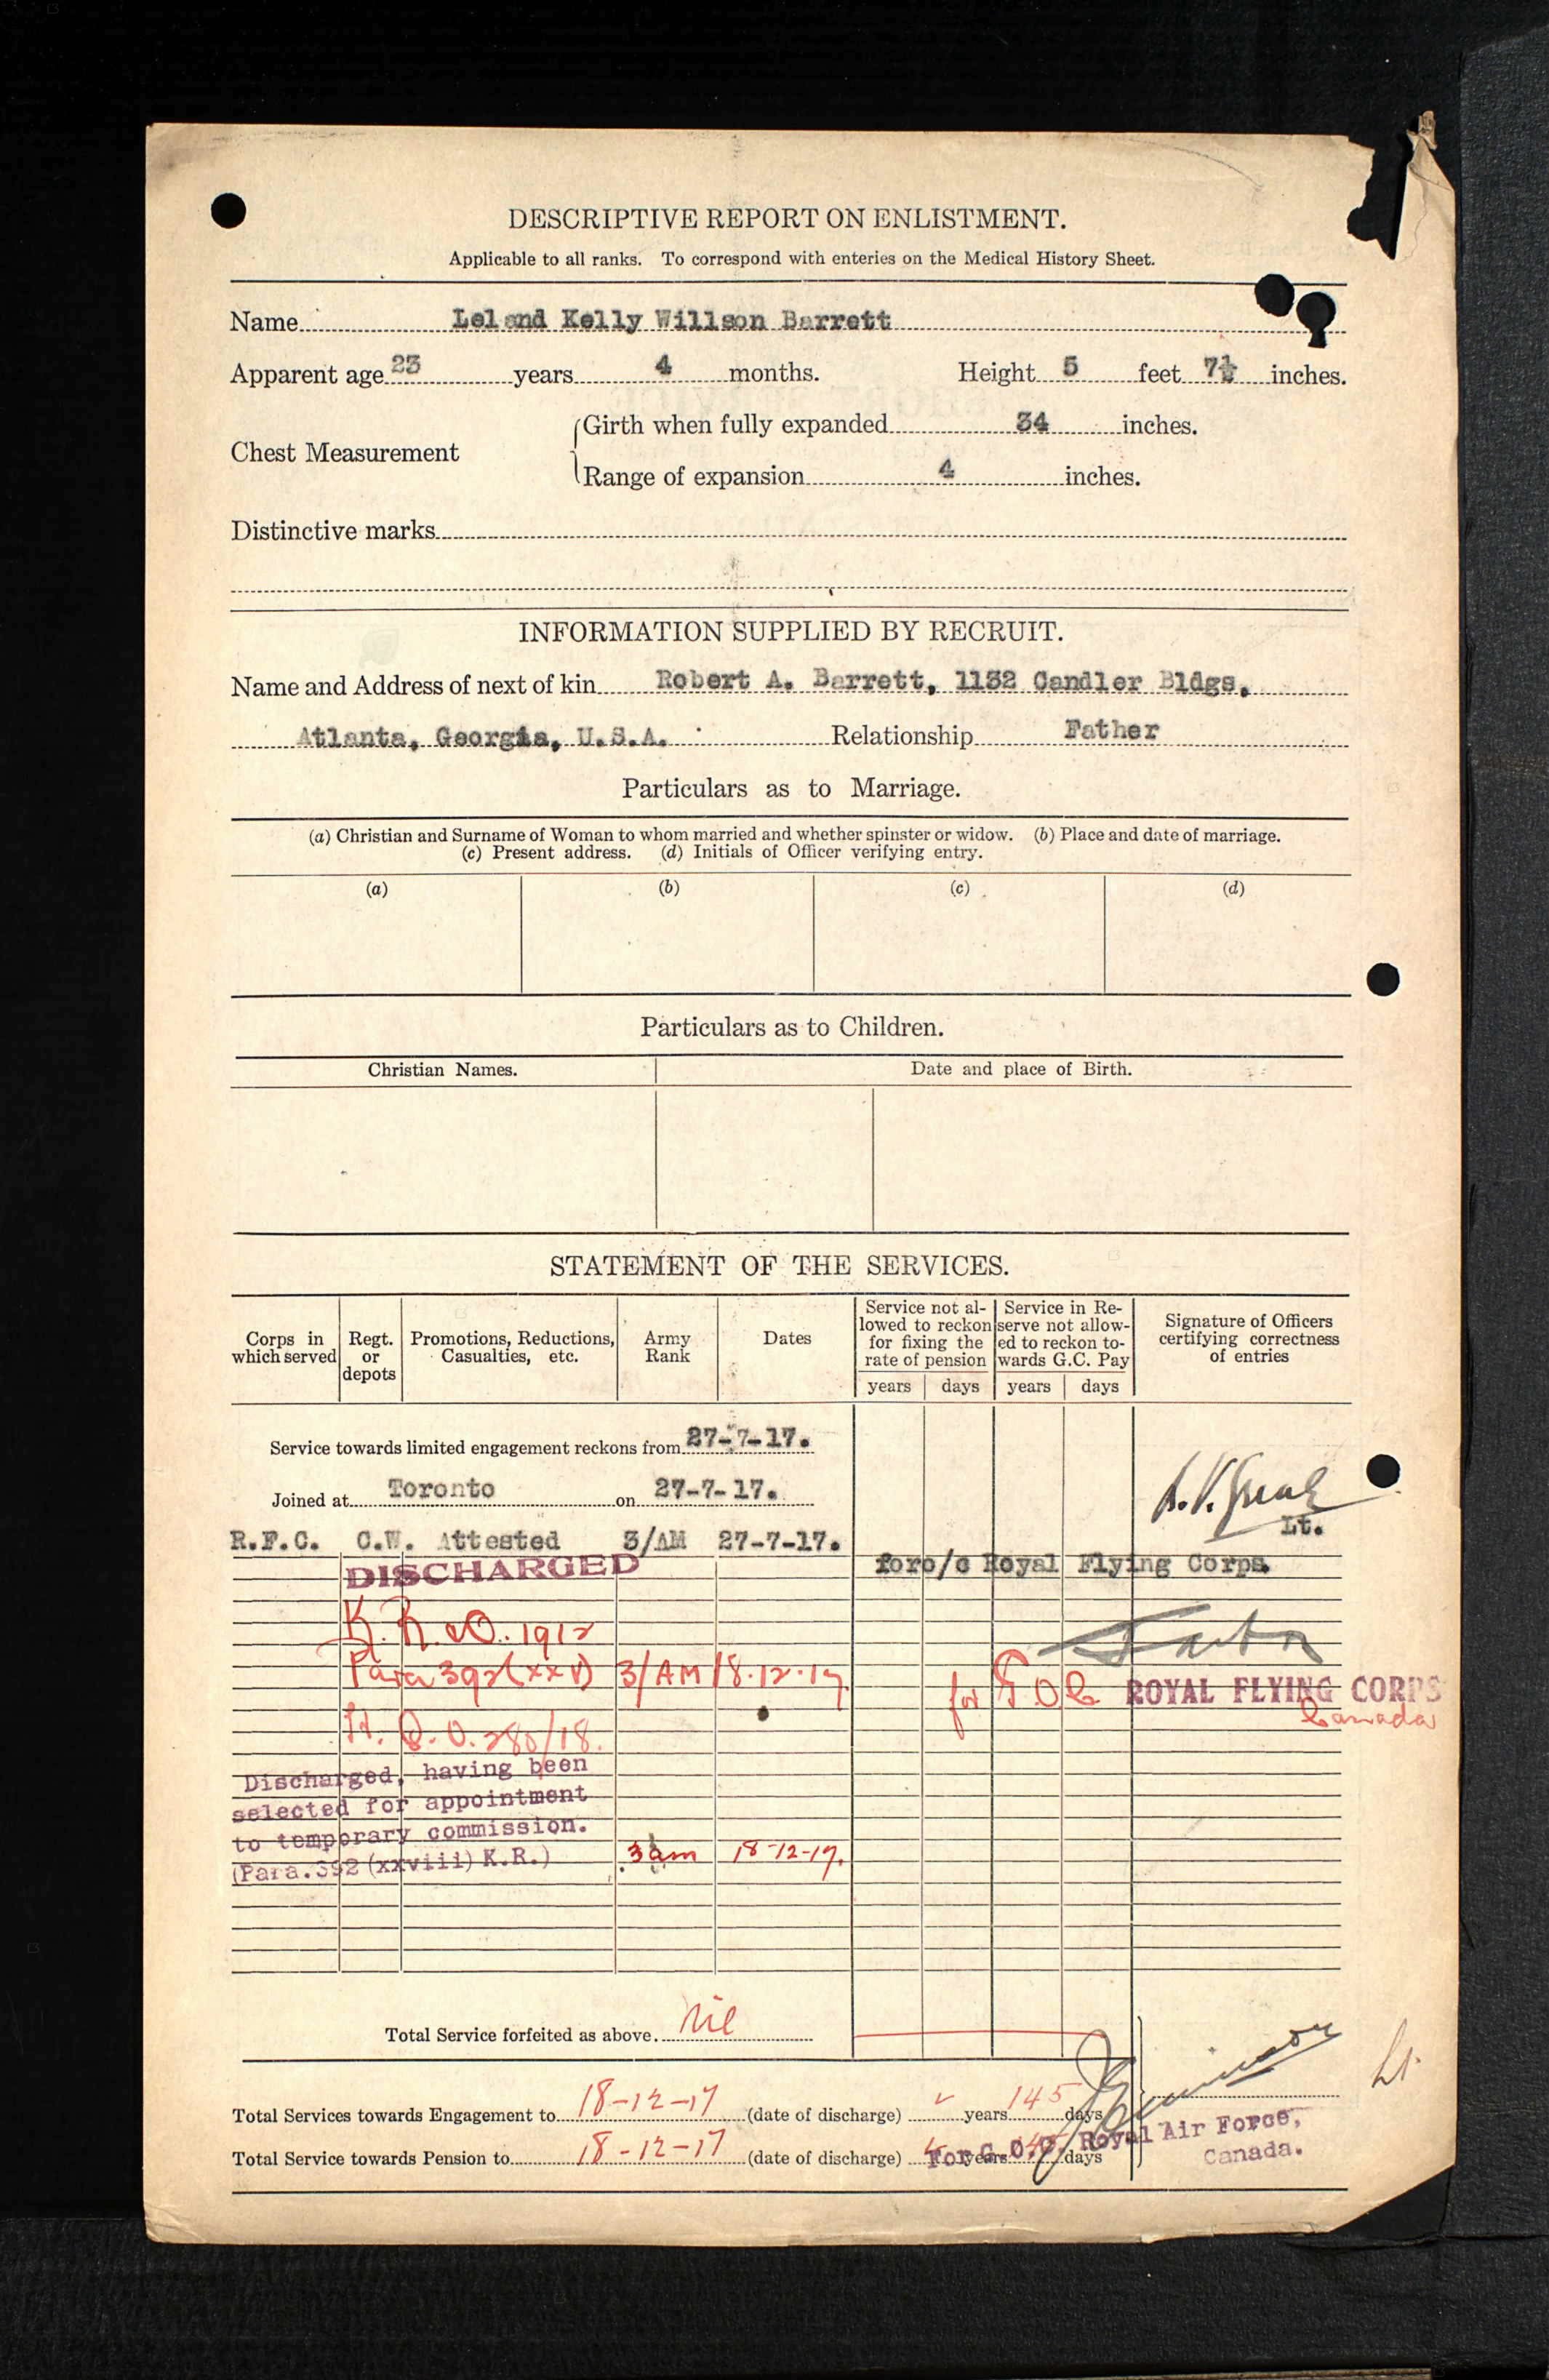 DESCRIPTIVE REPORT ON ENLISTMENT.
Applicable to all ranks. To correspond with enteries on the Medical History Sheet.
Name Leland Kelly Willson Barrett
Apparent age 23 years 4 months. Height 5 feet 7½ inches.
Chest Measurement
Girth when fully expanded 34 inches.
Range of expansion 4 inches.
Distinctive marks
INFORMATION SUPPLIED BY RECRUIT.
Name and Address of next of kin Robert A. Barrett, 1132 Candler Bldgs,
Atlanta, Georgia, U.S.A. Relationship Father
Particulars as to Marriage.
(a) Christian and Surname of Woman to whom married and whether spinster or widow. (b) Place and date of marriage.
(c) Present address. (d) Initials of Officer verifying entry.
(a) (b) (c) (d)
Particulars as to Children.
Christian Names. Date and place of Birth.
STATEMENT OF THE SERVICES.
Corps in which served
Regt. or depots
Promotions, Reductions, Casualties, etc.
Army Rank
Dates
Service not allowed to reckon for fixing the rate of pension
Service in Reserve not allowed to reckon towards G.C. Pay
Signature of Officers certifying correctness of entries
years days years days
Service towards limited engagement reckons from 27-7-17.
Joined at Toronto on 27-7-17.
Lt.
R.F.C. C.W. Attested 3/AM 27-7-17.
foro/c Royal Flying Corps.
DISCHARGED
K.R. & O. 1912
Para 392 (xxv) 3/AM 18.12.17.
for G O C ROYAL FLYING CORPS
Canada
280/18.
Discharged, having been
selected for appointment
to temporary commission.
(Para. 392 (xxviii) K.R.) 3am 18-12-17.
Total Service forfeited as above. Nil
Total Services towards Engagement to 18-12-17 (date of discharge) years 145 days
Lt.
Total Service towards Pension to 18-12-17 (date of discharge) years days
For G.O.C. Royal Air Force,
Canada.